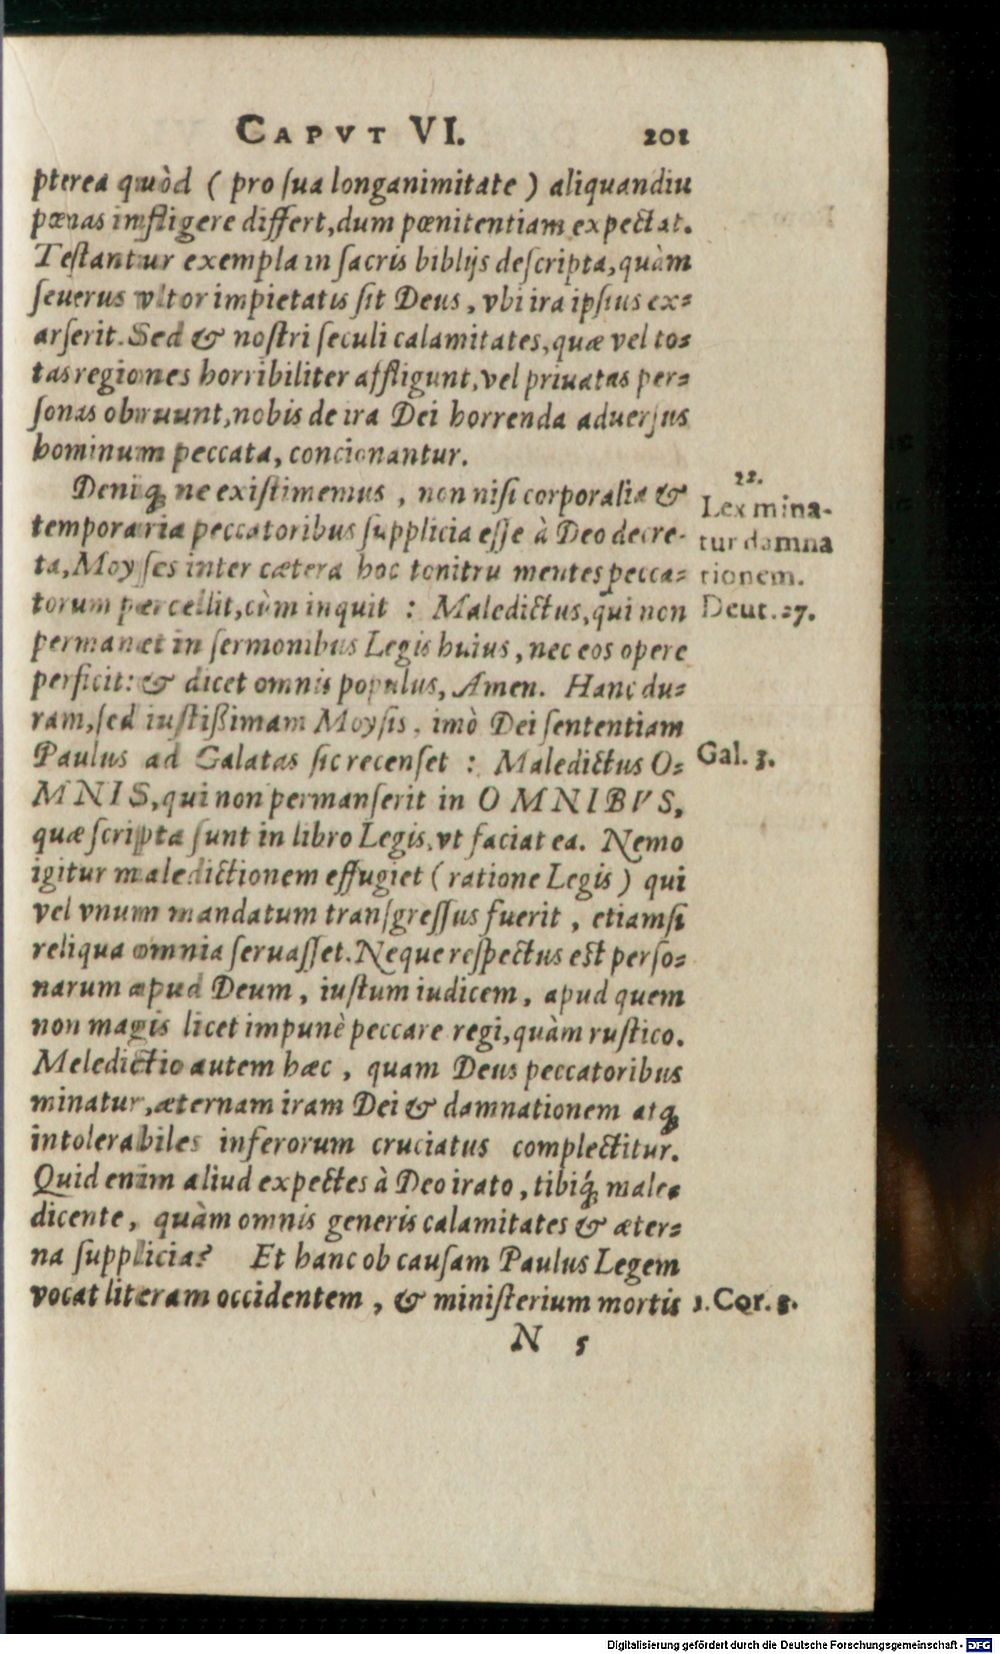 CAPVT VI. 201
pterea quòd (pro sua longanimitate) aliquandiu
pœnas infligere differt, dum pœnitentiam expectat.
Testantur exempla in sacris biblijs descripta, quàm
seuerus vltor impietatis sit Deus, vbi ira ipsius ex=
arserit. Sed & nostri seculi calamitates, quæ vel to=
tas regiones horribiliter affligunt, vel priuatas per=
sonas obruunt, nobis de ira Dei horrenda aduersus
hominum peccata, concionantur.
Deniq́; ne existimemus, non nisi corporalia &
temporaria peccatoribus supplicia esse à Deo decre-
ta, Moyses inter cætera hoc tonitru mentes pecca=
torum percellit, cùm inquit : Maledictus, qui non
permanet in sermonibus Legis huius, nec eos opere
perficit: & dicet omnis populus, Amen. Hanc du=
ram, sed iustißimam Moysis, imò Dei sententiam
Paulus ad Galatas sic recenset : Maledictus O=
MNIS, qui non permanserit in OMNIBVS,
quæ scripta sunt in libro Legis, vt faciat ea. Nemo
igitur maledictionem effugiet (ratione Legis) qui
vel vnum mandatum transgressus fuerit, etiamsi
reliqua omnia seruasset. Neque respectus est perso=
narum apud Deum, iustum iudicem, apud quem
non magis licet impunè peccare regi, quàm rustico.
Meledictio autem hæc, quam Deus peccatoribus
minatur, æternam iram Dei & damnationem atq;
intolerabiles inferorum cruciatus complectitur.
Quid enim aliud expectes à Deo irato, tibiq́; male=
dicente, quàm omnis generis calamitates & æter=
na supplicia? Et hanc ob causam Paulus Legem
vocat literam occidentem, & ministerium mortis
N 5
22.
Lex mina-
tur damna
tionem.
Deut. 27.
Gal. 3.
1. Cor. 3.
Digitalisierung gefördert durch die Deutsche Forschungsgemeinschaft - DFG